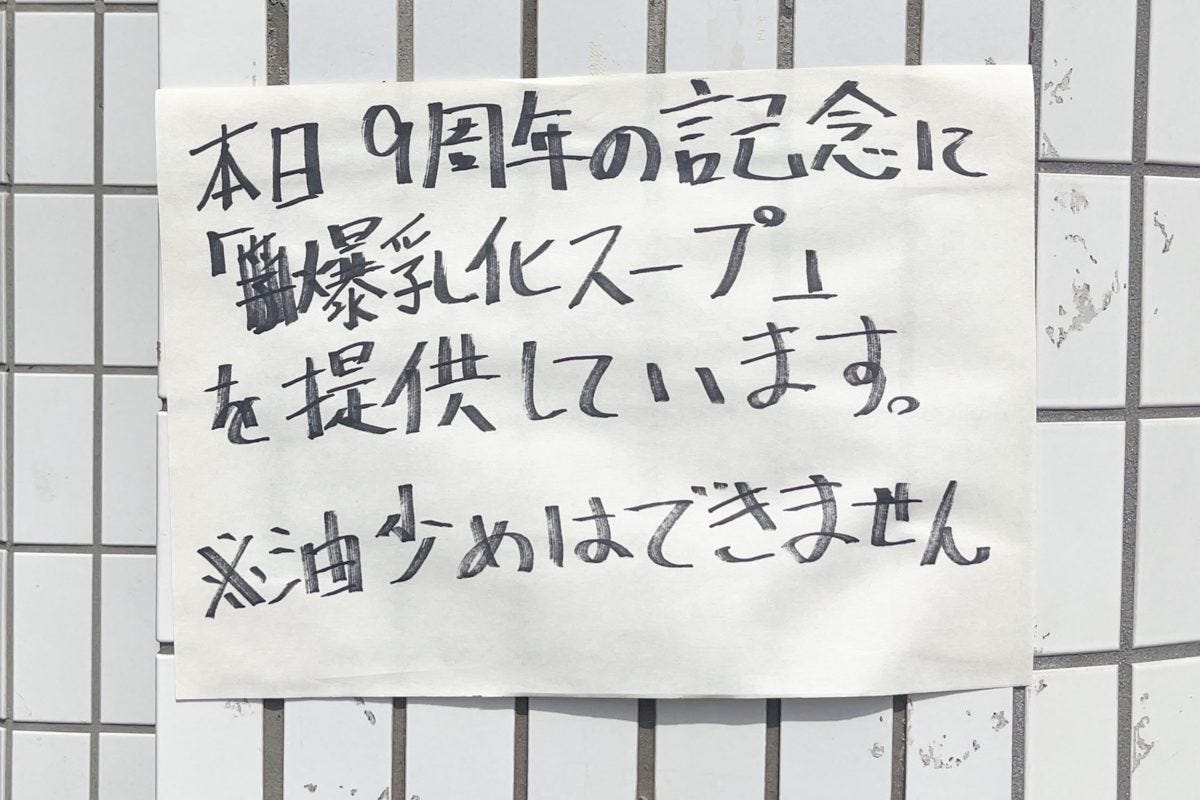 本日 9周年の記念に
「爆乳化スープ」
を提供しています。
※油少めはできません